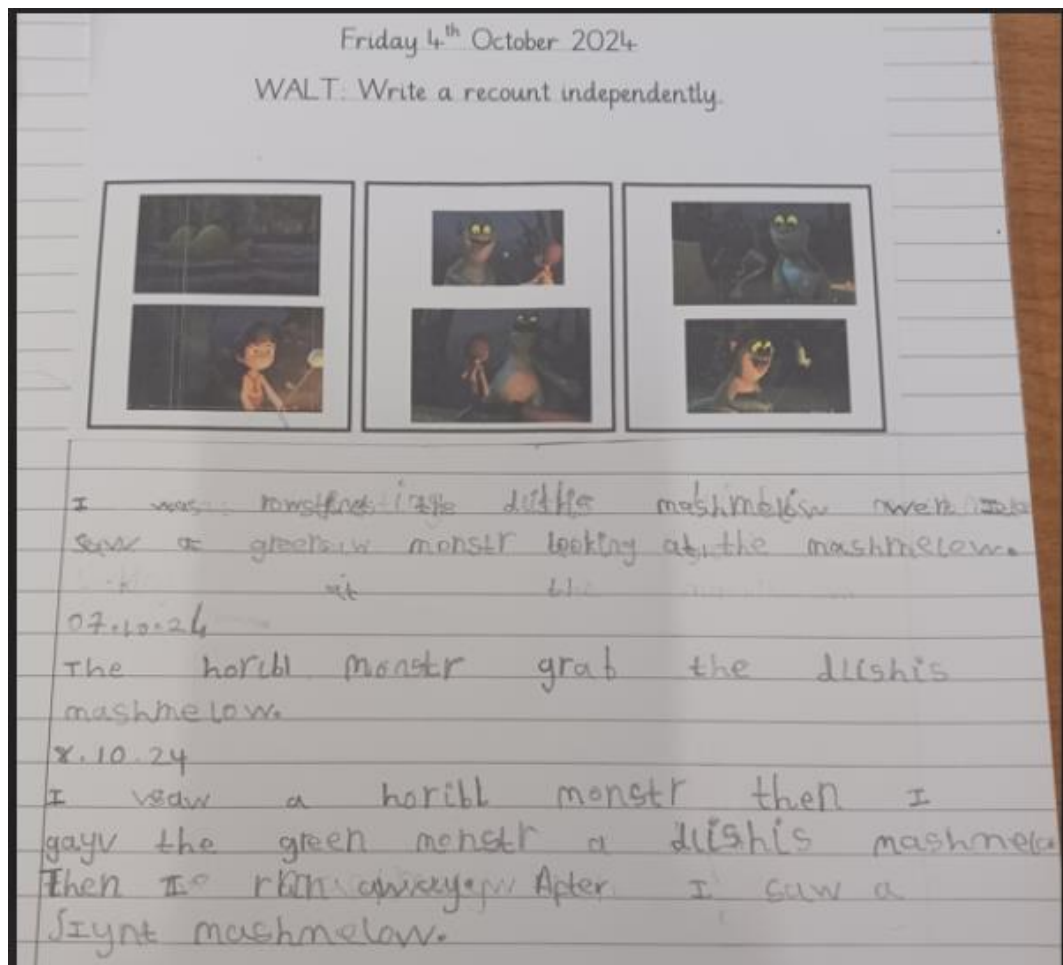 Friday 4th October 2024
WALT: Write a recount independently.
I was mashmelow wen
saw a green monstr looking at the mashmelow.
at
07.10.24
The horibl monstr grab the dlishis
mashmelow.
8.10.24
I saw a horibl monstr then I
gayv the green monstr a dlishis mashmelo
then I After I saw a
mashmelow.